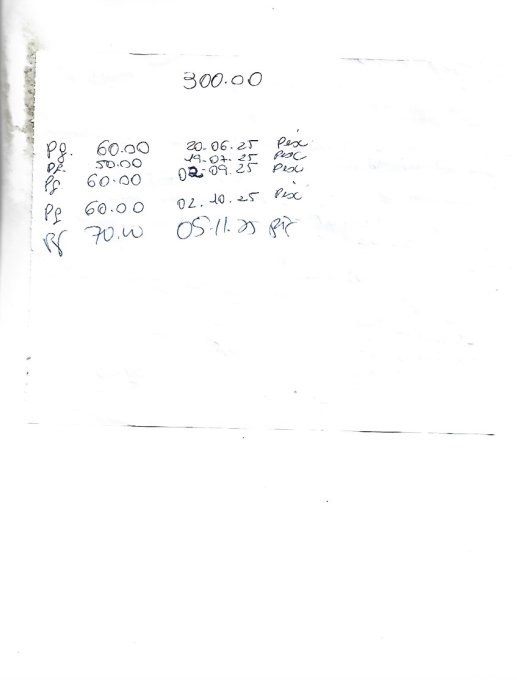 300.00
Pg. 60.00 20.06.25 Pix
Pg. 50.00 19.07.25 Pix
Pg 60.00 02.09.25 Pix
Pg 60.00 02.10.25 Pix
Pg 70.00 05.11.25 Pix